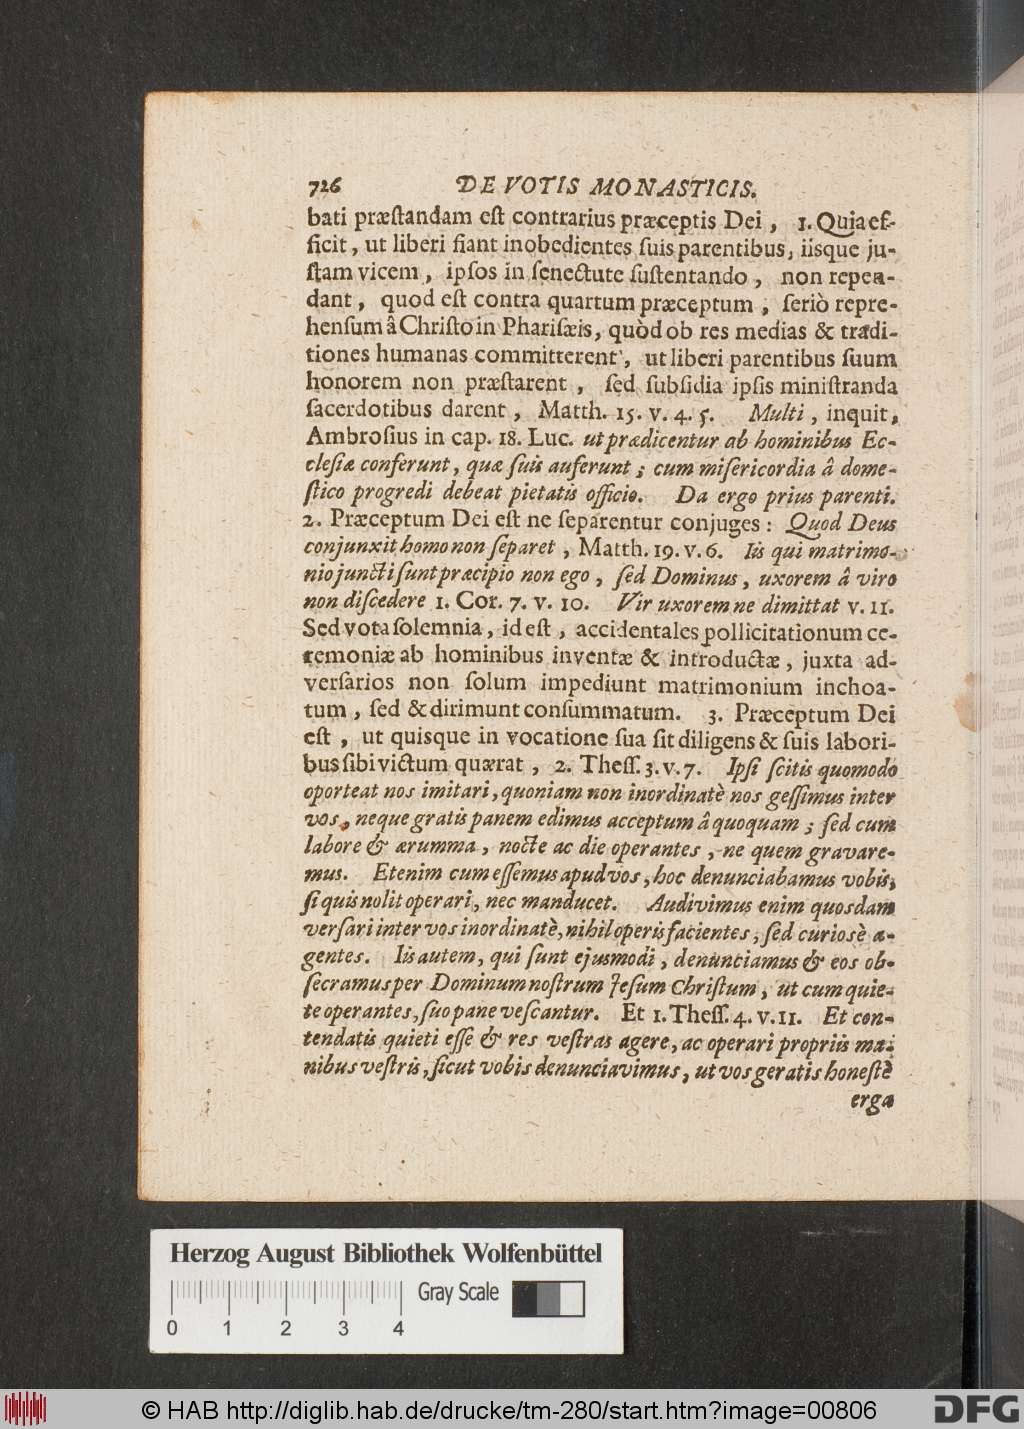 726 DE VOTIS MONASTICIS.
bati præſtandam eſt contrarius præceptis Dei, 1. Quia ef-
ficit, ut liberi fiant inobedientes ſuis parentibus, iisque ju-
ſtam vicem, ipſos in ſenectute ſuſtentando, non repen-
dant, quod eſt contra quartum præceptum, ſeriò repre-
henſum â Chriſto in Phariſæis, quòd ob res medias & tradi-
tiones humanas committerent, ut liberi parentibus ſuum
honorem non præſtarent, ſed ſubſidia ipſis miniſtranda
ſacerdotibus darent, Matth. 15. v. 4. 5. Multi, inquit,
Ambroſius in cap. 18. Luc. ut prædicentur ab hominibus Ec-
cleſiæ conferunt, quæ ſuis auferunt; cum miſericordia â dome-
ſtico progredi debeat pietatis officio. Da ergo prius parenti.
2. Præceptum Dei eſt ne ſeparentur conjuges: Quod Deus
conjunxit homo non ſeparet, Matth. 19. v. 6. Iis qui matrimo-
nio juncti ſunt præcipio non ego, ſed Dominus, uxorem â viro
non diſcedere 1. Cor. 7. v. 10. Vir uxorem ne dimittat v. 11.
Sed vota ſolemnia, id eſt, accidentales pollicitationum ce-
remoniæ ab hominibus inventæ & introductæ, juxta ad-
verſarios non ſolum impediunt matrimonium inchoa-
tum, ſed & dirimunt conſummatum. 3. Præceptum Dei
eſt, ut quisque in vocatione ſua ſit diligens & ſuis labori-
bus ſibi victum quærat, 2. Theſſ. 3. v. 7. Ipſi ſcitis quomodo
oporteat nos imitari, quoniam non inordinatè nos geſſimus inter
vos, neque gratis panem edimus acceptum â quoquam; ſed cum
labore & ærumma, nocte ac die operantes, ne quem gravare-
mus. Etenim cum eſſemus apud vos, hoc denunciabamus vobis,
ſi quis nolit operari, nec manducet. Audivimus enim quosdam
verſari inter vos inordinatè, nihil operis facientes, ſed curiosè a-
gentes. Iis autem, qui ſunt ejusmodi, denunciamus & eos ob-
ſecramus per Dominum noſtrum Jeſum Chriſtum, ut cum quie-
te operantes, ſuo pane veſcantur. Et 1. Theſſ. 4. v. 11. Et con-
tendatis quieti eſſe & res veſtras agere, ac operari propriis ma-
nibus veſtris, ſicut vobis denunciavimus, ut vos geratis honeſtè
erga
Herzog August Bibliothek Wolfenbüttel
Gray Scale
0 1 2 3 4
© HAB http://diglib.hab.de/drucke/tm-280/start.htm?image=00806
DFG